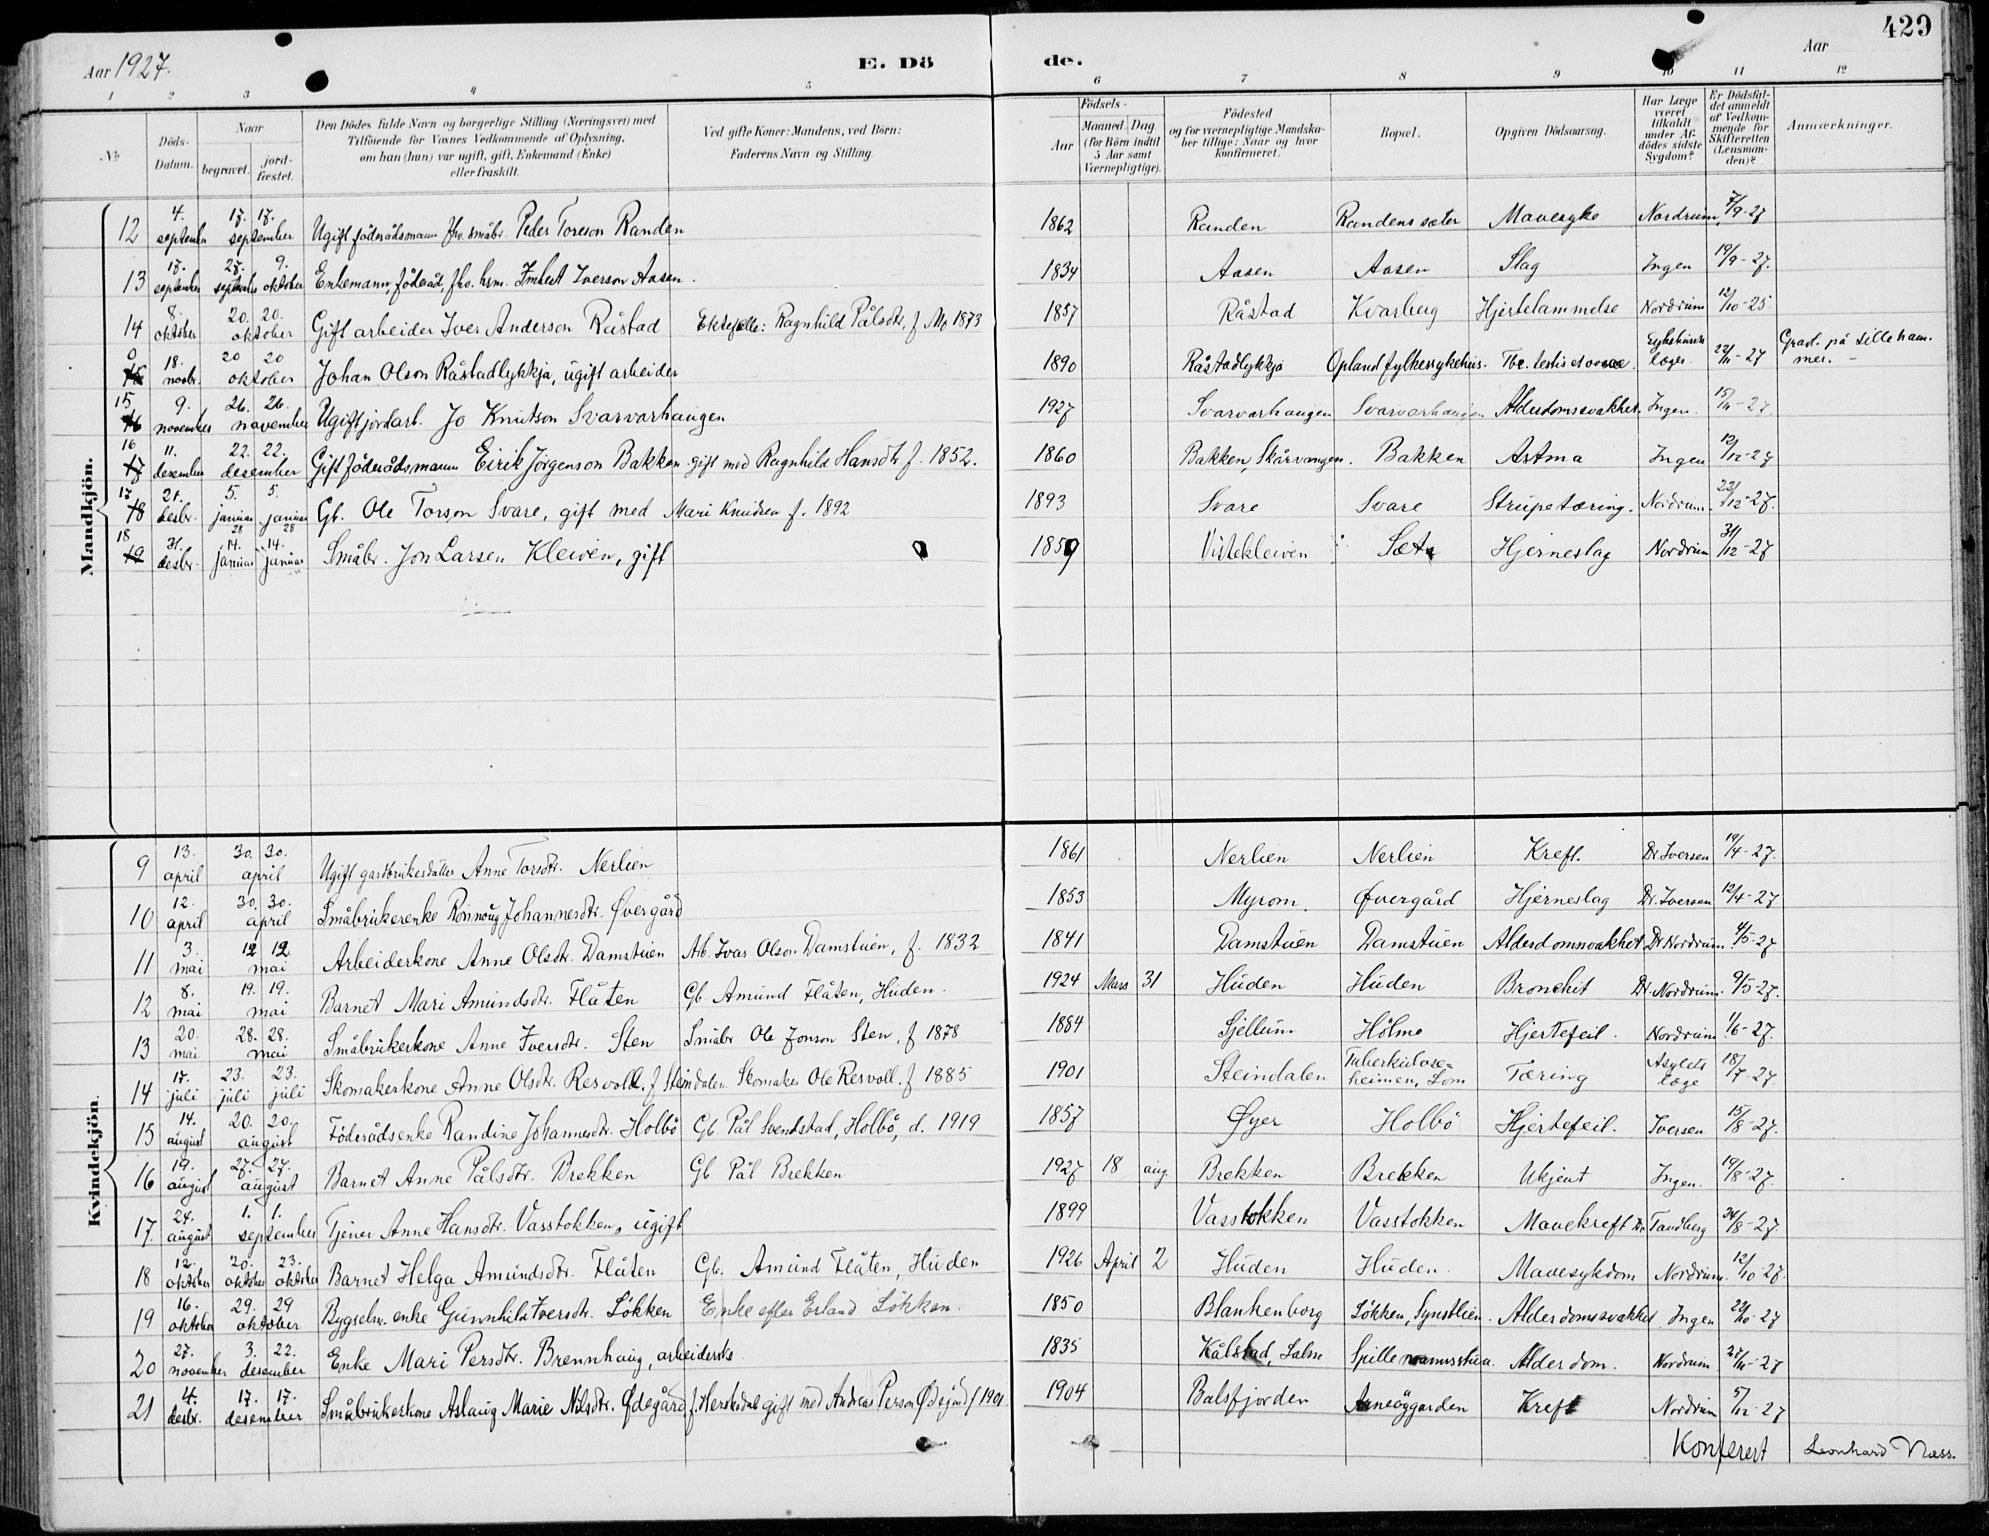 429
Aar 1927.
E. Dö de.
Aar
1 2 3 4 5 6 7 8 9 10 11 12
No
Döds-Datum.
Naar begravet. jordfæstet.
Den Dödes fulde Navn og borgerlige Stilling (Næringsvei) med Tilföiende for Voxnes Vedkommende af Oplysning, om han (hun) var ugift, gift, Enkemand (Enke) eller fraskilt.
Ved gifte Koner: Mandens, ved Börn: Faderens Navn og Stilling.
Födsels- Aar Maaned. Dag (for Börn indtil 5 Aar samt Værnepligtige).
Födested og for værnepligtige Mandskaber tillige: Naar og hvor konfirmeret.
Bopæl.
Opgiven Dödsaarsag.
Har Læge været tilkaldt under Afdödes sidste Sygdom?
Er Dödsfaldet anmeldt af Vedkommende for Skifteretten (Lensmanden)?
Anmærkninger.
Mandkjön.
12 4. september 17. 17. september Ugift föderådsmann fhv. småbr. Peder Toreson Randen 1862 Randen Randens sæter Mavesyke Nordrum 7/9-27
13 17. september 27. september 9. oktober Enkemann, föderåd, fhv. hsm. Imbert Iverson Aasen. 1834 Aasen Aasen Slag Ingen 19/9-27.
14 8. oktober 20. 20. oktober Gift arbeider Iver Anderson Råstad Ektefelle: Ragnhild Pålsdtr, f Mo 1873 1857 Råstad Kvarberg Hjertelammelse Nordrum 12/10-25.
0 15 18. novbr. 20 20 oktober Johan Olson Råstadlykkja, ugift arbeider 1890 Råstadlykkja Opland fylkessykehus. Tbc. testis et Sykehusets læge 22/11-27 Grad. på Lillehammer. -
15 16 9. november 26. 26. november Ugift jordarb. Jo Knutson Svarvarhaugen 1927 Svarvarhaugen Svarvarhaugen Alderdomssvakhet. Ingen. 15/11-27
16 17 11. desember 22. 22. desember Gift föderådsmann Eirik Jörgenson Bakken gift med Ragnhild Hansdtr f. 1852. 1860 Bakken, Skårvangen. Bakken Astma Ingen 12/12-27
17 18 21. desbr. 5. januar 28 5. januar 28 Gb. Ole Torson Svare, gift med Mari Knudsen f. 1892 1893 Svare Svare Strupetæring. Nordrum. 23/12-27.
18 19 31. desbr. 14. januar 14. januar Småbr. Jon Larsen Kleiven, gift 1859 Vistekleiven Sæta Hjerneslag Nordrum 31/12-27
Kvindekjön.
9 13. april 30. 30. april Ugift gardbrukerdatter Anne Torsdtr. Nerlien 1861 Nerlien Nerlien Kreft. Dr. Iversen 19/4-27.
10 12. april 30. 30. april Småbrukerenke Rönnaug Johannesdtr. Øvergård 1853 Myrom. Øvergård Hjerneslag Dr. Iversen 12/4-27
11 3. mai 12 12. mai Arbeiderkone Anne Olsdtr. Damstuen Arb. Ivar Olson Damstuen, f. 1832 1841 Damstuen Damstuen Alderdomsvakhet Dr Nordrum. 4/5-27
12 8. mai 19. 19. mai Barnet Mari Amundsdtr. Flåten Gb. Amund Flåten, Huden. 1924 Mars 31 Huden Huden Bronchit Dr. Nordrum. 9/5-27.
13 20. mai 28. 28. mai Småbrukerkone Anne Iversdtr. Sten Småbr Ole Jonson Sten, f 1878 1884 Sjellum Hölmo Hjertefeil. Nordrum 1/6-27.
14 17. juli 23. juli 23. juli Skomakerkone Anne Olsdtr. Resvoll. f Steindalen. Skomaker Ole Resvoll. f 1885 1901 Steindalen Tuberkuloseheimen, Lom Tæring Asylets læge 18/7-27.
15 14. august 20. 20. august Föderådsenke Randine Johannesdtr. Holbö Gb Pål Svendstad, Holbö, d. 1919 1857 Øyer Holbö Hjertefeil. Iversen 15/8-27.
16 19. august 27. 27. august Barnet Anne Pålsdtr. Brekken Gb. Pål Brekken 1927 18 aug. Brekken Brekken Ukjent Ingen. 19/8-27.
17. 24. august 1. 1. september Tjener Anne Hansdtr. Vasstokken, ugift 1899 Vasstokken Vasstokken Mavekreft Dr. Tandberg 24/8-27.
18 12. oktober 20. oktober 23. oktober Barnet Helga Amundsdtr. Flåten Gb. Amund Flåten, Huden 1926 April 2 Huden Huden. Mavesykdom Nordrum. 12/10-27.
19 16. oktober 29. 29 oktober Bygselm. enke Gunnhild Iversdtr. Lökken Enke efter Erland Lökken. 1850 Blankenborg Lökken, Synstlien. Alderdomssvakhet. Ingen 22/10-27
20 27. november 3. 22. desember Enke Mari Persdtr. Brennhaug, arbeiderske 1835 Kålstad, Salm Alderdom. Nordrum 27/11-27
21 4. desbr. 17. 17. desember Småbrukerkone Aslaug Marie Nilsdtr. Ødegård f. gift med Andreas Person Ødegård f 1901 1904 Balsfjorden Kreft Nordrum 5/12-27
Konferert Leonhard Næss.